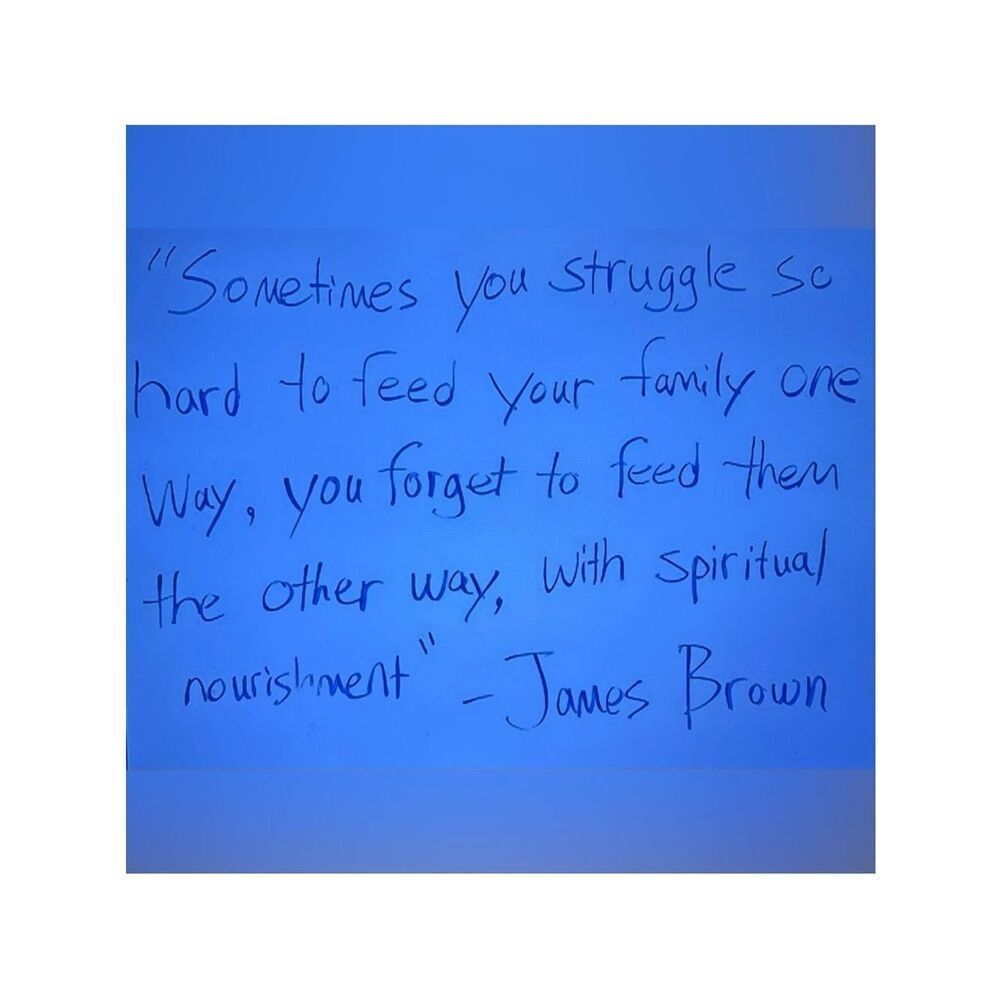 "Sometimes you struggle so
hard to feed your family one
Way, you forget to feed them
the other way, with spiritual
nourishment" - James Brown